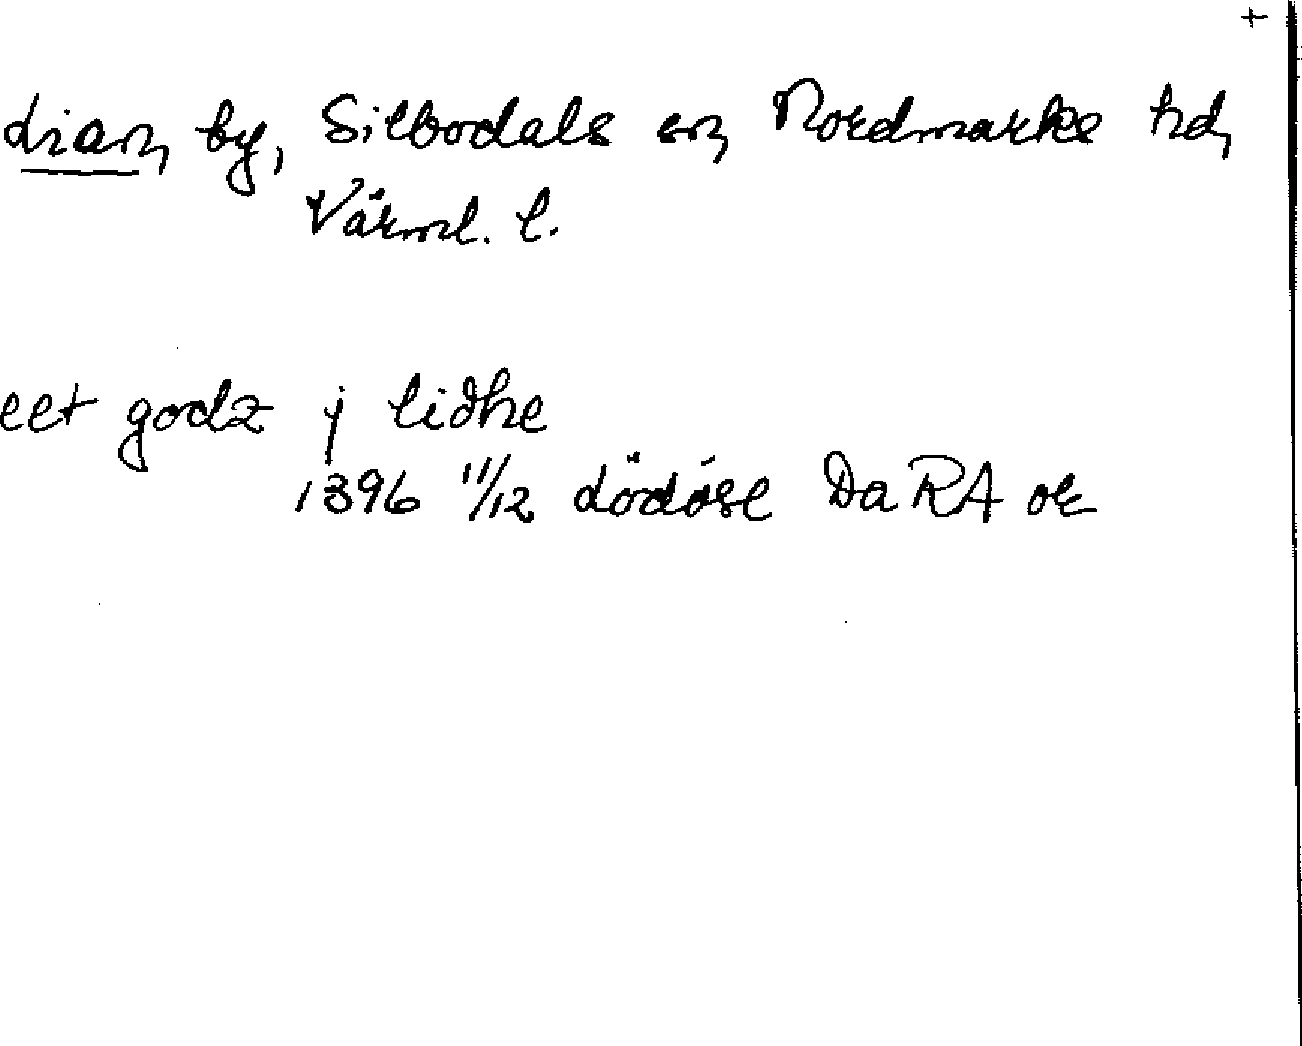 +
Lian, by, Silbodals sn, Nordmarks hd,
Värml. l.
eet godz j lidhe
1396 11/12 Lödöse DaRA or